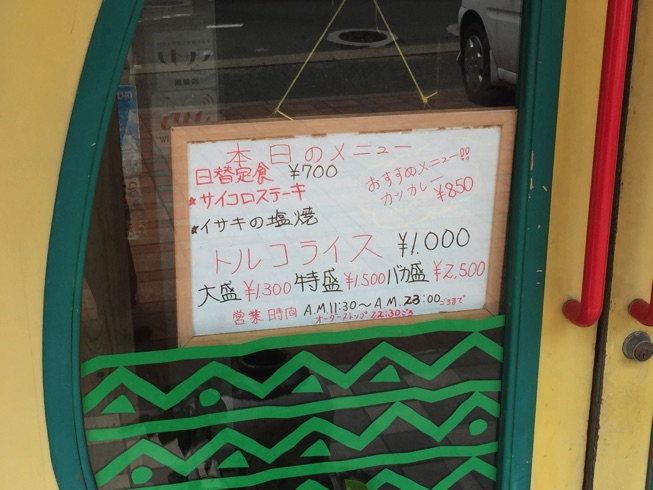 本日のメニュー
日替定食 ¥700
☆サイコロステーキ
☆イサキの塩焼
おすすめメニュー!!
カツカレー ¥850
トルコライス ¥1.000
大盛¥1.300 特盛¥1.500 バカ盛¥2,500
営業時間 A.M.11:30〜A.M.23:00ごろまで
オーダーストップ22:30ごろ